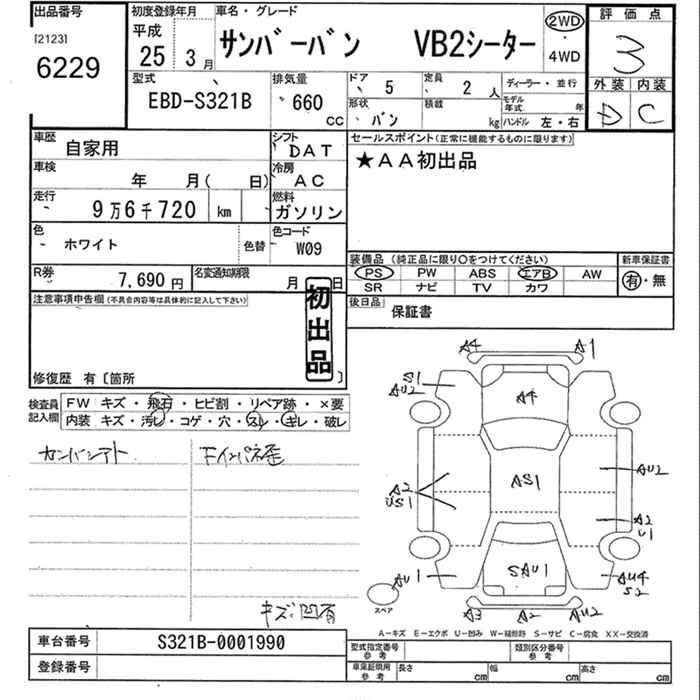 出品番号 初度登録年月 車名・グレード 評価点
[2123] 平成 2WD 3
6229 25年 3月 サンバーバン VB2シーター 4WD
型式 排気量 ドア 5 定員 2人 ディーラー・並行 外装 内装
EBD-S321B 660 CC 形状 バン 積載 kg モデル年式 年 D C
ハンドル 左・右
車歴 自家用 シフト DAT セールスポイント(正常に機能するものに限ります)
車検 年 月( 日) 冷房 AC ★AA初出品
走行 9万6千720 km 燃料 ガソリン
色 ホワイト 色替 色コード W09
装備品 (純正品に限り○をつけてください) 新車保証書
PS PW ABS エアB AW 有・無
SR ナビ TV カワ
R券 7,690円 名変通知期限 月 日
後日品 保証書
注意事項申告欄(不具合内容等は具体的に記入して下さい)
初出品
修復歴 有〔箇所 〕
検査員記入欄 FW キズ・飛石・ヒビ割・リペア跡・×要
内装 キズ・汚レ・コゲ・穴・スレ・キレ・破レ
カンバンアト Fインパネ歪
キズ凹有
A4 A1
S1
AU2
A4
AU2
AS1
A2
US1
A2
U1
AU1 SAU1 AU4
S2
スペア
A3 A2 AU2
A－キズ E－エクボ U－凹み W－補修跡 S－サビ C－腐食 XX－交換済
車台番号 S321B-0001990
登録番号
型式指定番号 参考 類別区分番号 参考
車庫証明用 参考 長さ cm 幅 cm 高さ cm